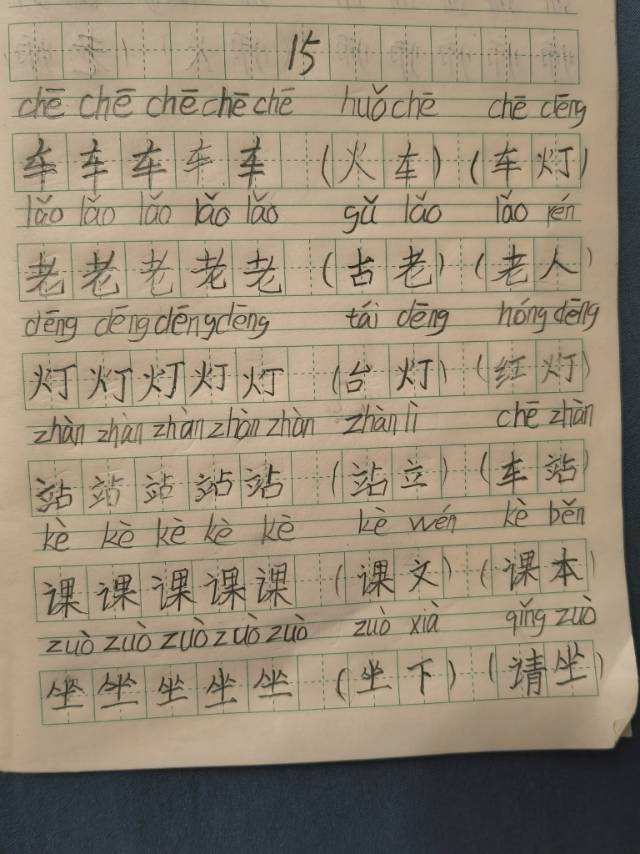 15
chē chē chē chē chē huǒ chē chē dēng
车 车 车 车 车 (火 车) (车 灯)
lǎo lǎo lǎo lǎo lǎo gǔ lǎo lǎo rén
老 老 老 老 老 (古 老) (老 人)
dēng dēng dēng dēng tái dēng hóng dēng
灯 灯 灯 灯 灯 (台 灯) (红 灯)
zhàn zhàn zhàn zhàn zhàn zhàn lì chē zhàn
站 站 站 站 站 (站 立) (车 站)
kè kè kè kè kè kè wén kè běn
课 课 课 课 课 (课 文) (课 本)
zuò zuò zuò zuò zuò zuò xià qǐng zuò
坐 坐 坐 坐 坐 (坐 下) (请 坐)